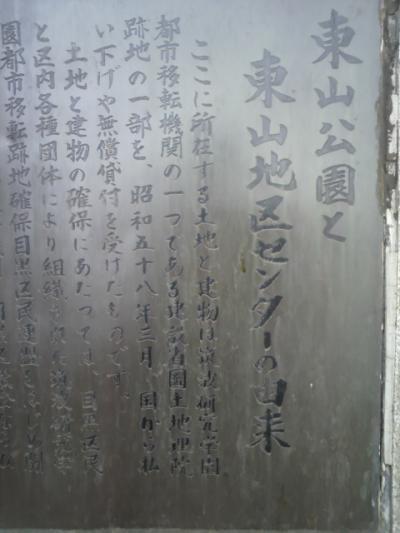 東山公園と
東山地区センターの由来
ここに所在する土地と建物は筑波研究学園
都市移転機関の一つである建設省国土地理院
跡地の一部を、昭和五十八年三月、国から払
い下げや無償貸付を受けたものです。
土地と建物の確保にあたっては、目黒区民
と区内各種団体により組織された筑波研究学
園都市移転跡地確保目黒区民連盟をはじめ関